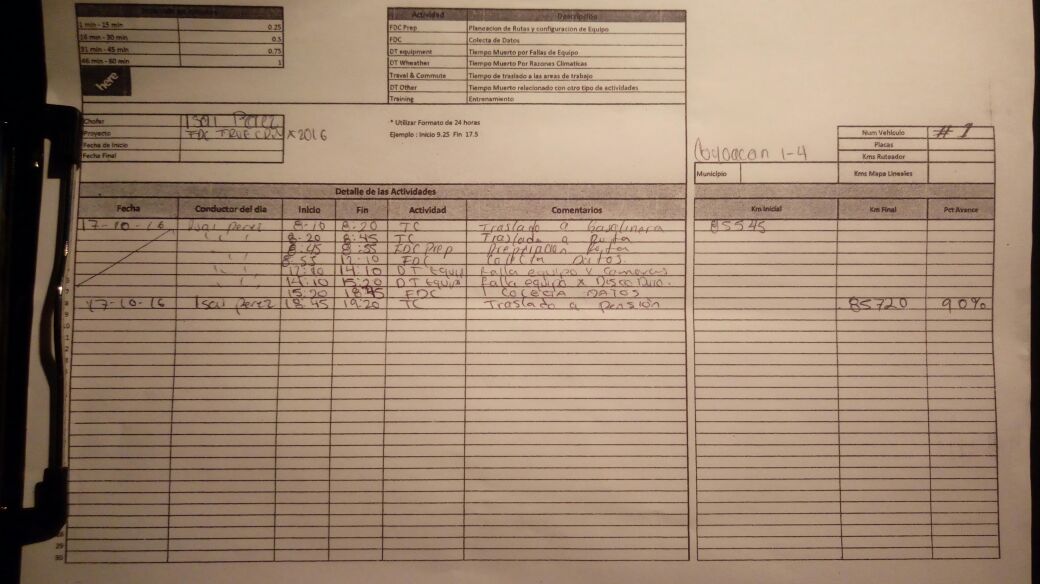 1 min - 15 min 0.25
16 min - 30 min 0.5
31 min - 45 min 0.75
46 min - 60 min 1
here
Actividad Descripción
FDC Prep Planeacion de Rutas y configuración de Equipo
FDC Colecta de Datos
DT equipment Tiempo Muerto por Fallas de Equipo
DT Wheather Tiempo Muerto Por Razones Climaticas
Travel & Commute Tiempo de traslado a las areas de trabajo
DT Other Tiempo Muerto relacionado con otro tipo de actividades
Training Entrenamiento
Chofer Isai Perez
Proyecto FDC TRUE MX 2016
Fecha de Inicio
Fecha Final
* Utilizar Formato de 24 horas
Ejemplo : Inicio 9.25 Fin 17.5
Coyoacan 1-4
Municipio
Num Vehiculo # 1
Placas
Kms Ruteador
Kms Mapa Lineales
Detalle de las Actividades
Fecha Conductor del dia Inicio Fin Actividad Comentarios Km Inicial Km Final Pct Avance
17-10-16 Isai perez 8:10 8:20 TC Traslado a gasolinera 85545
8:20 8:45 TC Traslado a Ruta
8:45 8:55 FDC Prep Ruta
8:55 FDC Datos.
14:10 DT Equip Falla equipo x
14:10 15:20 DT Equip Falla equipo x Disco Duro.
15:20 18:45 FDC Colecta DATOS
17-10-16 Isai perez 18:45 19:20 TC Traslado a pension 85720 90%
29
30